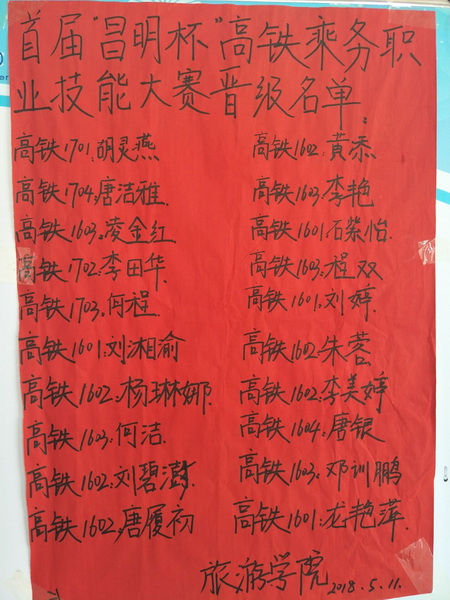 首届"昌明杯"高铁乘务职
业技能大赛晋级名单.
高铁1701:胡灵燕 高铁1602:黄添
高铁1704:唐洁雅. 高铁1603:李艳
高铁1603:凌金红 高铁1601:石紫怡
高铁1702:李田华. 高铁1603:程双
高铁1703:何程 高铁1601:刘婷
高铁1601:刘湘渝 高铁1602:朱蓉
高铁1602:杨琳娜. 高铁1602:李美婷
高铁1603:何洁. 高铁1604:唐银
高铁1602:刘碧澍 高铁1603:邓训鹏
高铁1602:唐履初 高铁1601:龙艳萍.
旅游学院 2018.5.11.